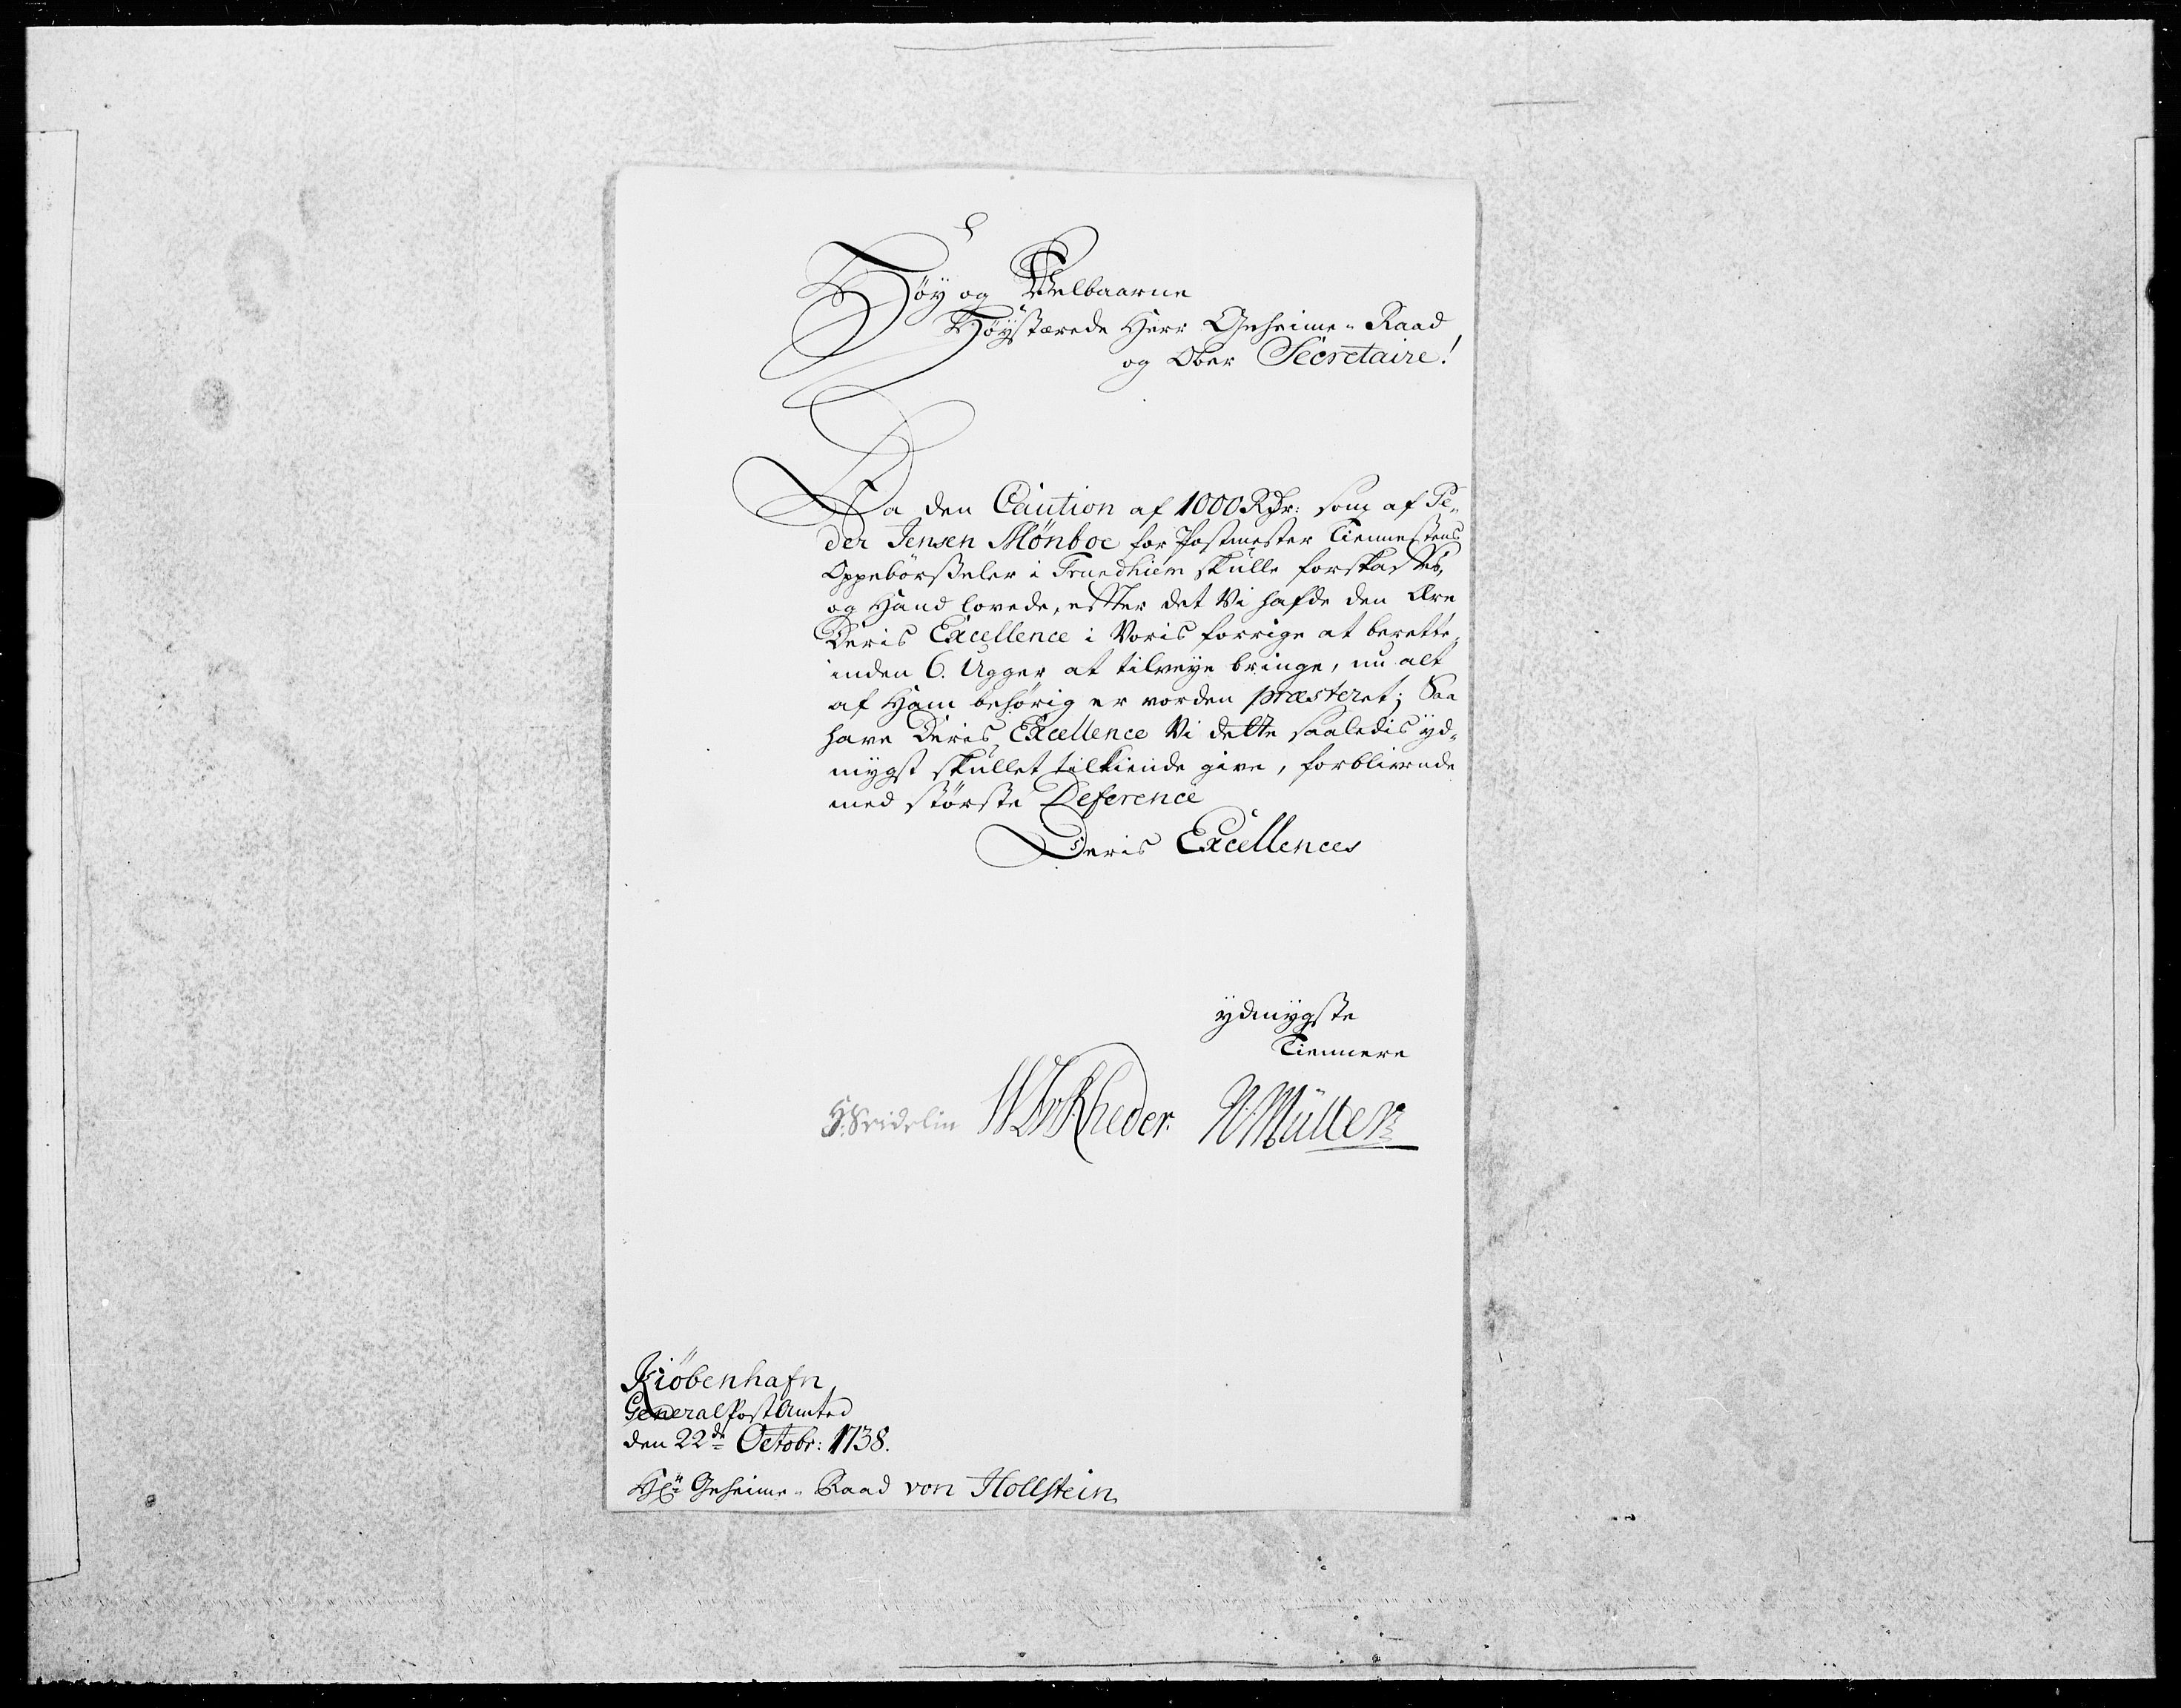 Höy og Velbaarne
Höystærede Herr Geheime-Raad
og Ober Secretaire!
Da den Caution af 1000 Rdr: som af Pe-
der Jensen Mönboe for Postmester Tiennestens
Oppebörsseler i Trundhiem skulle forskaffes,
og Hand lovede, efter det Vi hafde den Ære
Deris Excellence i Voris forrige at berette,
inden 6. Uger at tilveye bringe, nu alt
af Ham behörig er vorden præsteret; Saa
have Deris Excellence Vi dette saaledis yd-
mygst skullet tilkiende give, forblivende
med störste Deference
Deris Excellences
ydmygste
Tiennere
H. Seidelin Rheder. Müller
Kiöbenhafn
General Post Amted
den 22de Octobr: 1738.
Geheime-Raad von Hollstein